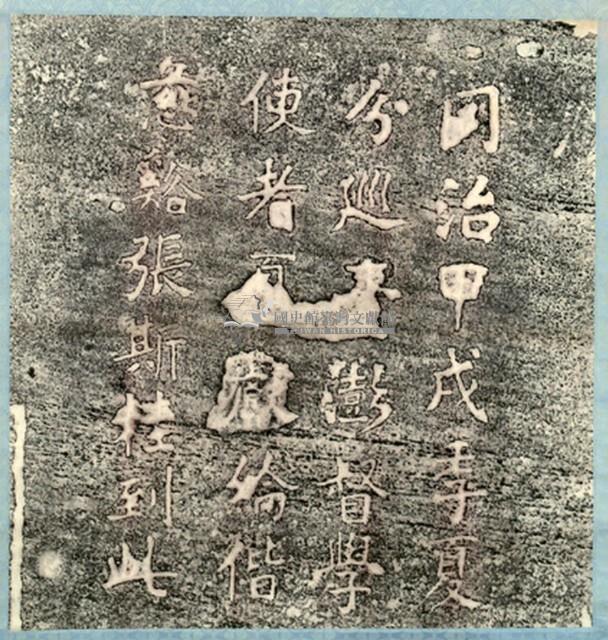 同治甲戌季夏
分巡澎督學
使者獻綸偕
慈谿張斯桂到此
國史館臺灣文獻館
TAIWAN HISTORICA